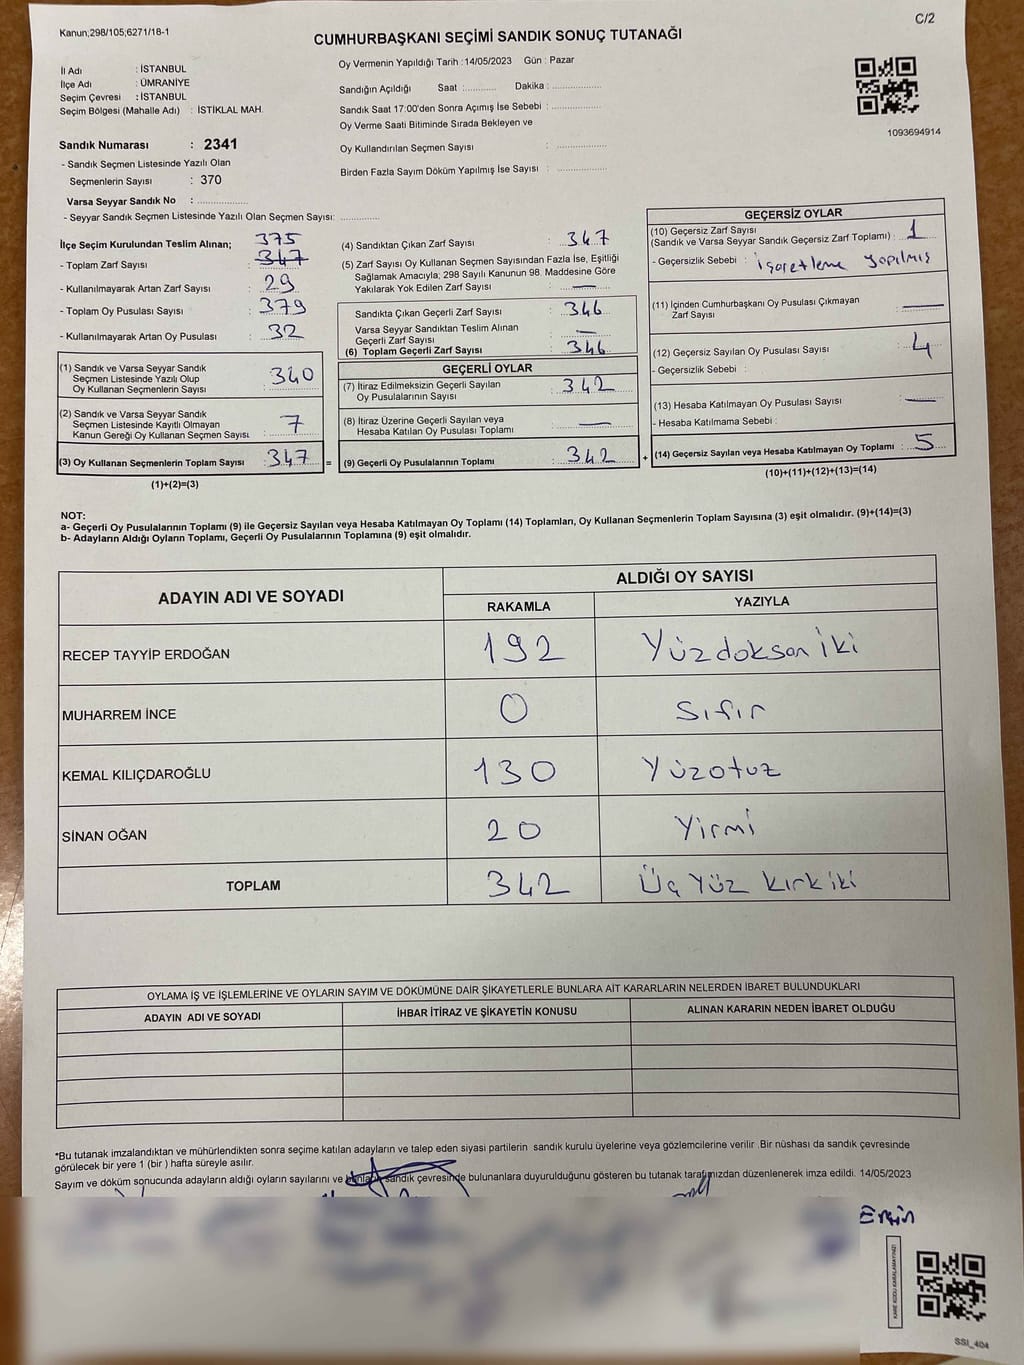 Kanun;298/105;6271/18-1
C/2
CUMHURBAŞKANI SEÇİMİ SANDIK SONUÇ TUTANAĞI
İl Adı : İSTANBUL
İlçe Adı : ÜMRANİYE
Seçim Çevresi : İSTANBUL
Seçim Bölgesi (Mahalle Adı) : İSTİKLAL MAH.
Sandık Numarası : 2341
- Sandık Seçmen Listesinde Yazılı Olan
Seçmenlerin Sayısı : 370
Varsa Seyyar Sandık No : ..................
- Seyyar Sandık Seçmen Listesinde Yazılı Olan Seçmen Sayısı: ..............
Oy Vermenin Yapıldığı Tarih :14/05/2023 Gün : Pazar
Sandığın Açıldığı Saat :........... Dakika :.................
Sandık Saat 17:00'den Sonra Açımış İse Sebebi :.................
Oy Verme Saati Bitiminde Sırada Bekleyen ve
Oy Kullandırılan Seçmen Sayısı : .................
Birden Fazla Sayım Döküm Yapılmış İse Sayısı : .................
1093694914
İlçe Seçim Kurulundan Teslim Alınan; 375
- Toplam Zarf Sayısı : 347
- Kullanılmayarak Artan Zarf Sayısı : 29
- Toplam Oy Pusulası Sayısı : 379
- Kullanılmayarak Artan Oy Pusulası : 32
(1) Sandık ve Varsa Seyyar Sandık
Seçmen Listesinde Yazılı Olup
Oy Kullanan Seçmenlerin Sayısı : 340
(2) Sandık ve Varsa Seyyar Sandık
Seçmen Listesinde Kayıtlı Olmayan
Kanun Gereği Oy Kullanan Seçmen Sayısı : 7
(3) Oy Kullanan Seçmenlerin Toplam Sayısı : 347 =
(1)+(2)=(3)
(4) Sandıktan Çıkan Zarf Sayısı : 347
(5) Zarf Sayısı Oy Kullanan Seçmen Sayısından Fazla İse, Eşitliği
Sağlamak Amacıyla; 298 Sayılı Kanunun 98. Maddesine Göre
Yakılarak Yok Edilen Zarf Sayısı : —
Sandıkta Çıkan Geçerli Zarf Sayısı : 346
Varsa Seyyar Sandıktan Teslim Alınan
Geçerli Zarf Sayısı : —
(6) Toplam Geçerli Zarf Sayısı : 346
GEÇERLİ OYLAR
(7) İtiraz Edilmeksizin Geçerli Sayılan
Oy Pusulalarının Sayısı : 342
(8) İtiraz Üzerine Geçerli Sayılan veya
Hesaba Katılan Oy Pusulası Toplamı : —
(9) Geçerli Oy Pusulalarının Toplamı : 342 +
GEÇERSİZ OYLAR
(10) Geçersiz Zarf Sayısı
(Sandık ve Varsa Seyyar Sandık Geçersiz Zarf Toplamı) : 1
- Geçersizlik Sebebi : işaretleme yapılmış
(11) İçinden Cumhurbaşkanı Oy Pusulası Çıkmayan
Zarf Sayısı : —
(12) Geçersiz Sayılan Oy Pusulası Sayısı : 4
- Geçersizlik Sebebi :
(13) Hesaba Katılmayan Oy Pusulası Sayısı : —
- Hesaba Katılmama Sebebi :
(14) Geçersiz Sayılan veya Hesaba Katılmayan Oy Toplamı : 5
(10)+(11)+(12)+(13)=(14)
NOT:
a- Geçerli Oy Pusulalarının Toplamı (9) ile Geçersiz Sayılan veya Hesaba Katılmayan Oy Toplamı (14) Toplamları, Oy Kullanan Seçmenlerin Toplam Sayısına (3) eşit olmalıdır. (9)+(14)=(3)
b- Adayların Aldığı Oyların Toplamı, Geçerli Oy Pusulalarının Toplamına (9) eşit olmalıdır.
ADAYIN ADI VE SOYADI ALDIĞI OY SAYISI
RAKAMLA YAZIYLA
RECEP TAYYİP ERDOĞAN 192 Yüzdoksan İki
MUHARREM İNCE 0 Sıfır
KEMAL KILIÇDAROĞLU 130 Yüzotuz
SİNAN OĞAN 20 Yirmi
TOPLAM 342 Üç Yüz kırk iki
OYLAMA İŞ VE İŞLEMLERİNE VE OYLARIN SAYIM VE DÖKÜMÜNE DAİR ŞİKAYETLERLE BUNLARA AİT KARARLARIN NELERDEN İBARET BULUNDUKLARI
ADAYIN ADI VE SOYADI İHBAR İTİRAZ VE ŞİKAYETİN KONUSU ALINAN KARARIN NEDEN İBARET OLDUĞU
*Bu tutanak imzalandıktan ve mühürlendikten sonra seçime katılan adayların ve talep eden siyasi partilerin sandık kurulu üyelerine veya gözlemcilerine verilir .Bir nüshası da sandık çevresinde
görülecek bir yere 1 (bir ) hafta süreyle asılır.
Sayım ve döküm sonucunda adayların aldığı oyların sayılarını ve bunların sandık çevresinde bulunanlara duyurulduğunu gösteren bu tutanak tarafımızdan düzenlenerek imza edildi. 14/05/2023
KARE KODU KARALAMAYINIZ!
SSI_404